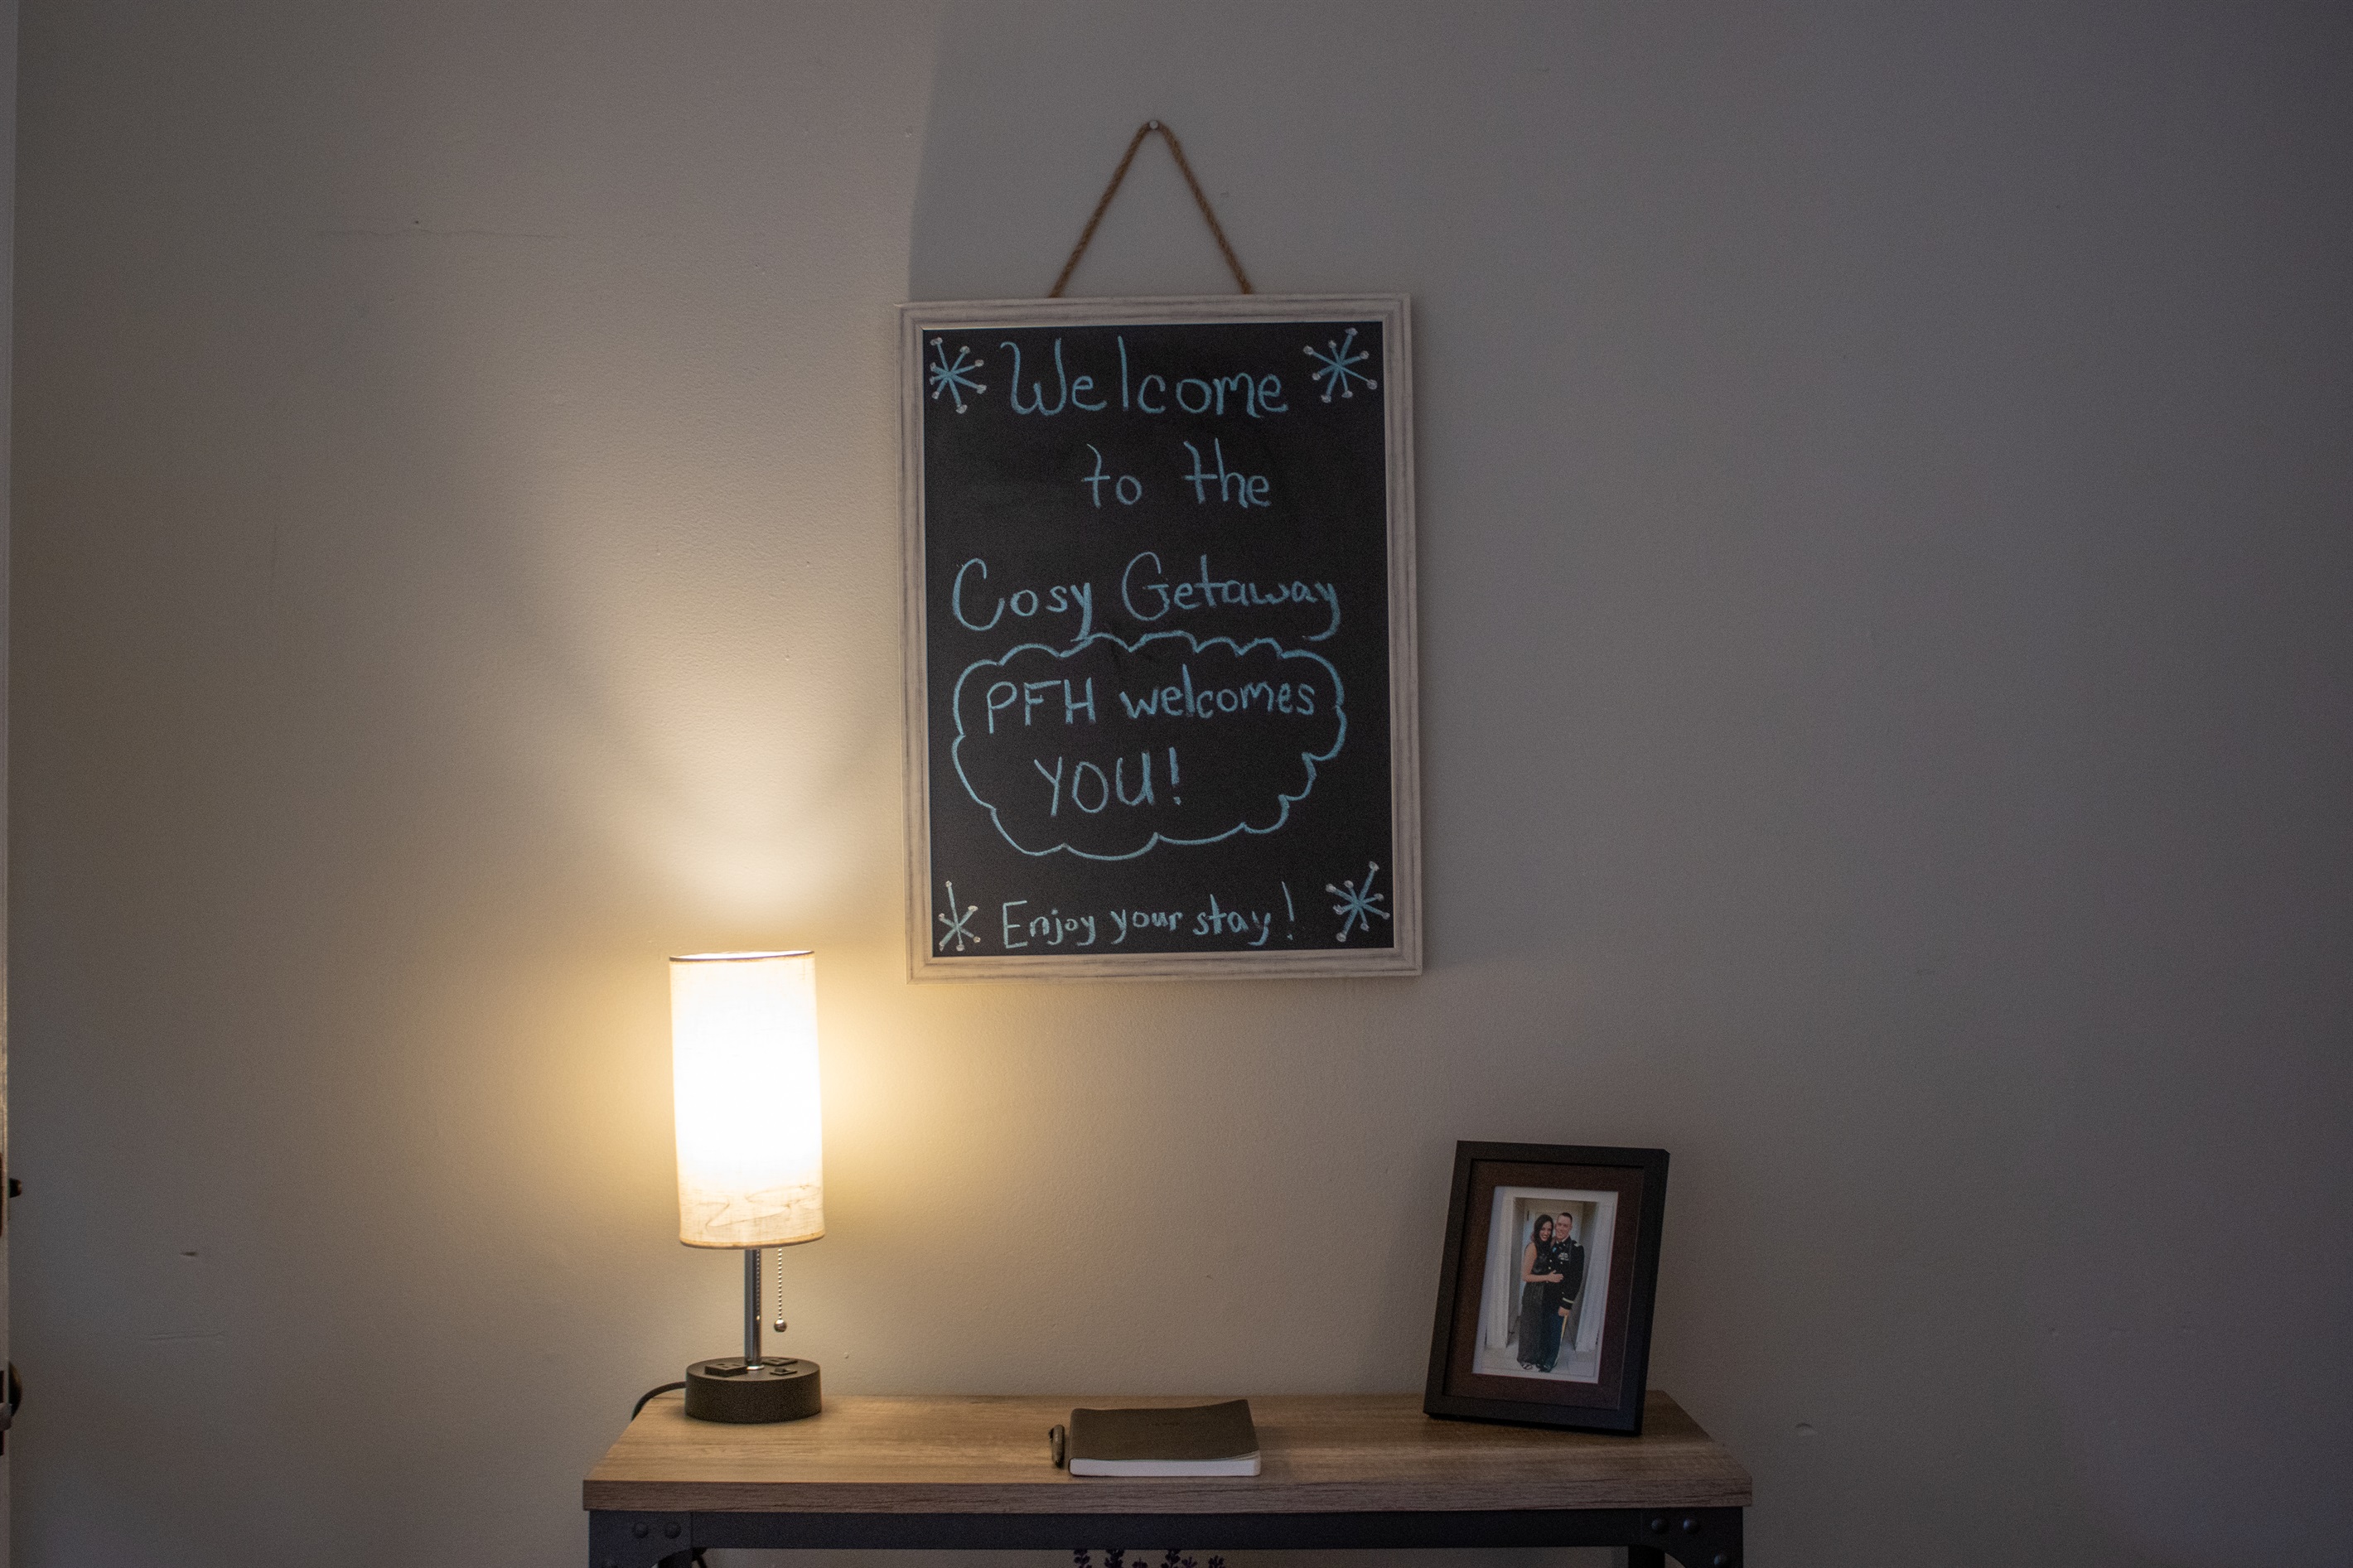 Welcome
to the
Cosy Getaway
PFH welcomes
YOU!
Enjoy your stay!